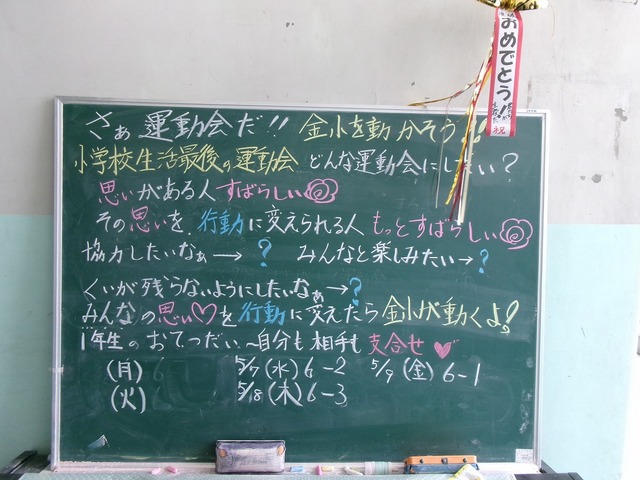 おめでとう!!
祝
さぁ 運動会だ!! 金小を動かそう!!
小学校生活最後の運動会 どんな運動会にしたい?
思いがある人 すばらしい
その思いを、行動に変えられる人 もっとすばらしい
協力したいなぁ→? みんなと楽しみたい→?
くいが残らないようにしたいなぁ→?
みんなの思い♡を行動に変えたら金小が動くよ!
1年生のおてつだい~自分も相手も支合せ♥
(月) 5/7(水)6-2 5/9(金)6-1
(火) 5/8(木)6-3